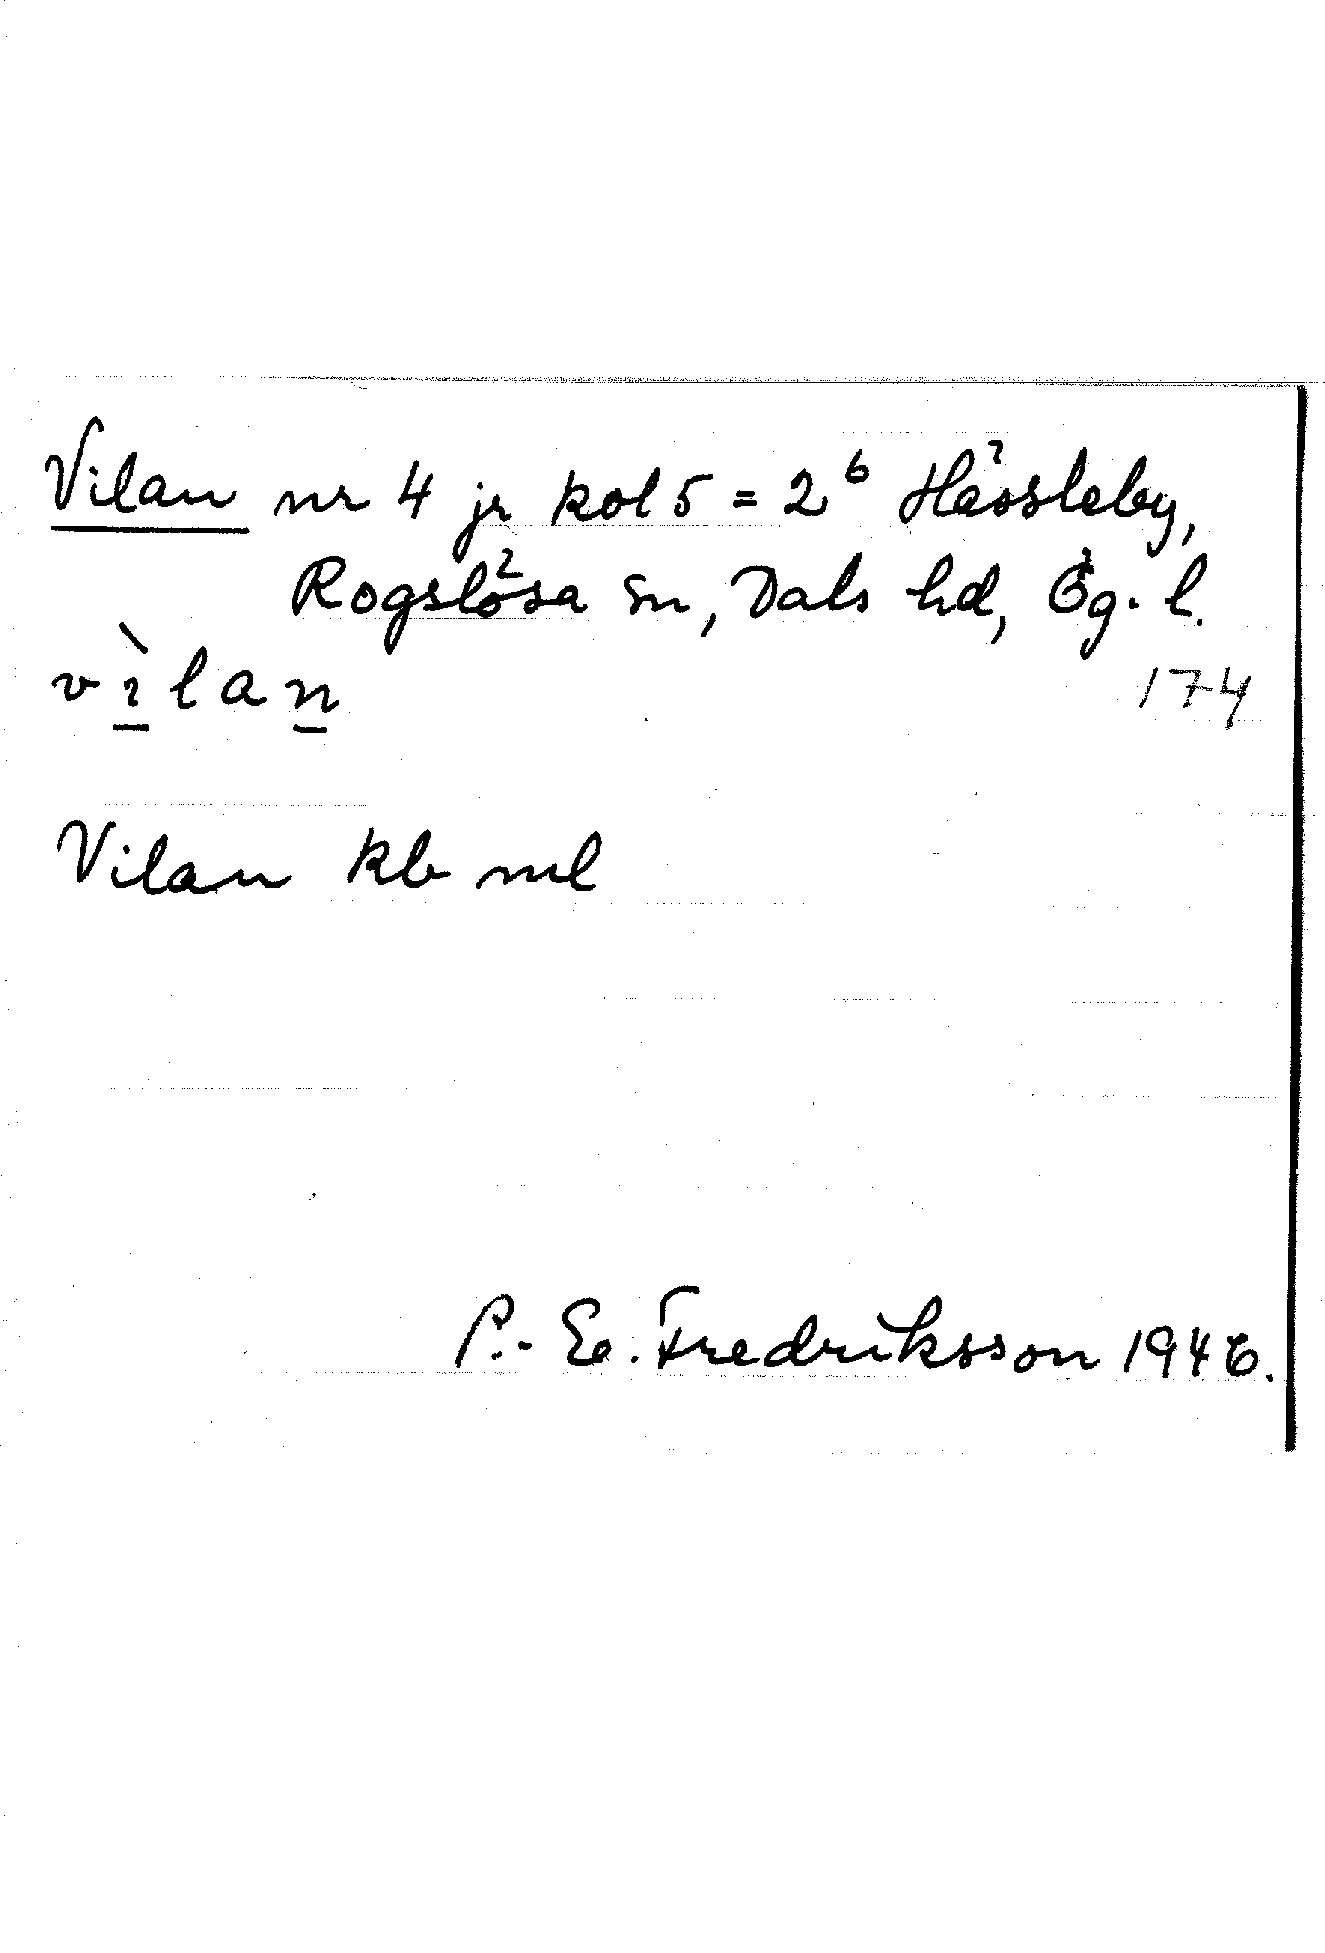 Vilan nr 4 jr kol 5 = 2⁶ Hässleby,
Rogslösa sn, Dals hd, Ög. l.
vı̀lan
174
Vilan kb ml
P.-E. Fredriksson 1946.